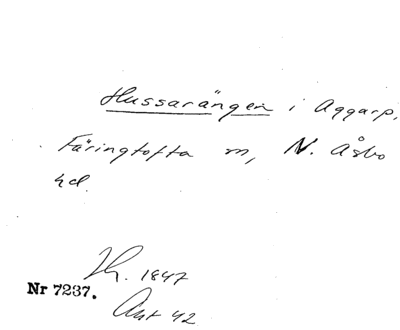 Hussarängen i Aggarp,
Färingtofta m, N. Åsbo
hd.
Zh. 1847
Nr 7237.
Ant 42